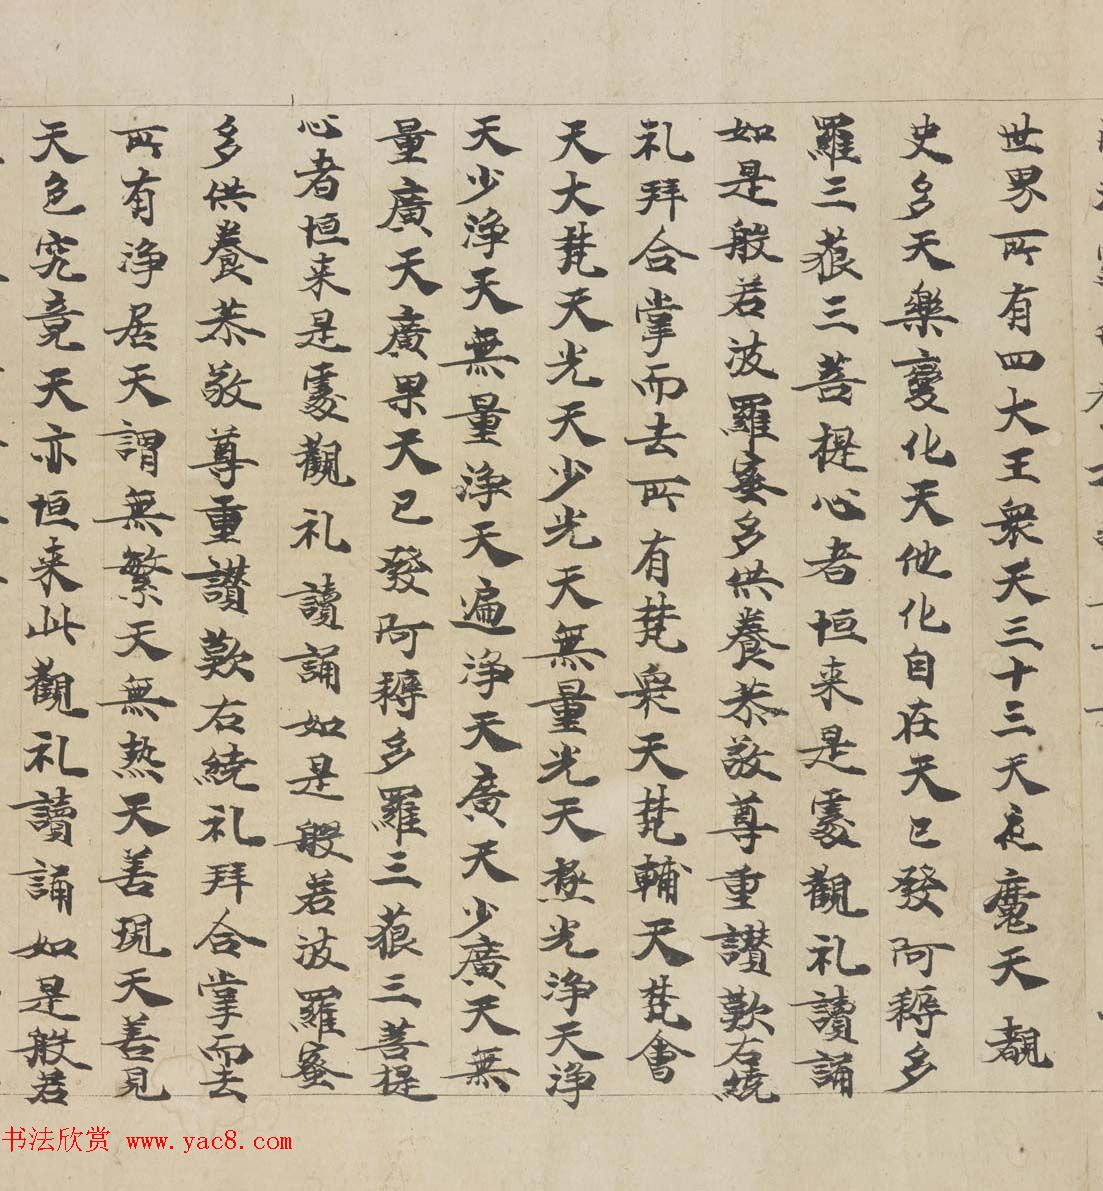 世界所有四大王衆天三十三天夜魔天覩
史多天樂變化天他化自在天已發阿耨多
羅三藐三菩提心者恒来是處觀礼讀誦
如是般若波羅蜜多供養恭敬尊重讃歎右繞
礼拜合掌而去所有梵衆天梵輔天梵會
天大梵天光天少光天無量光天極光淨天浄
天少淨天無量淨天遍淨天廣天少廣天無
量廣天廣果天已發阿耨多羅三藐三菩提
心者恒来是處觀礼讀誦如是般若波羅蜜
多供養恭敬尊重讃歎右繞礼拜合掌而去
所有淨居天謂無繁天無熱天善現天善見
天色究竟天亦恒来此觀礼讀誦如是般若
书法欣赏 www.yac8.com